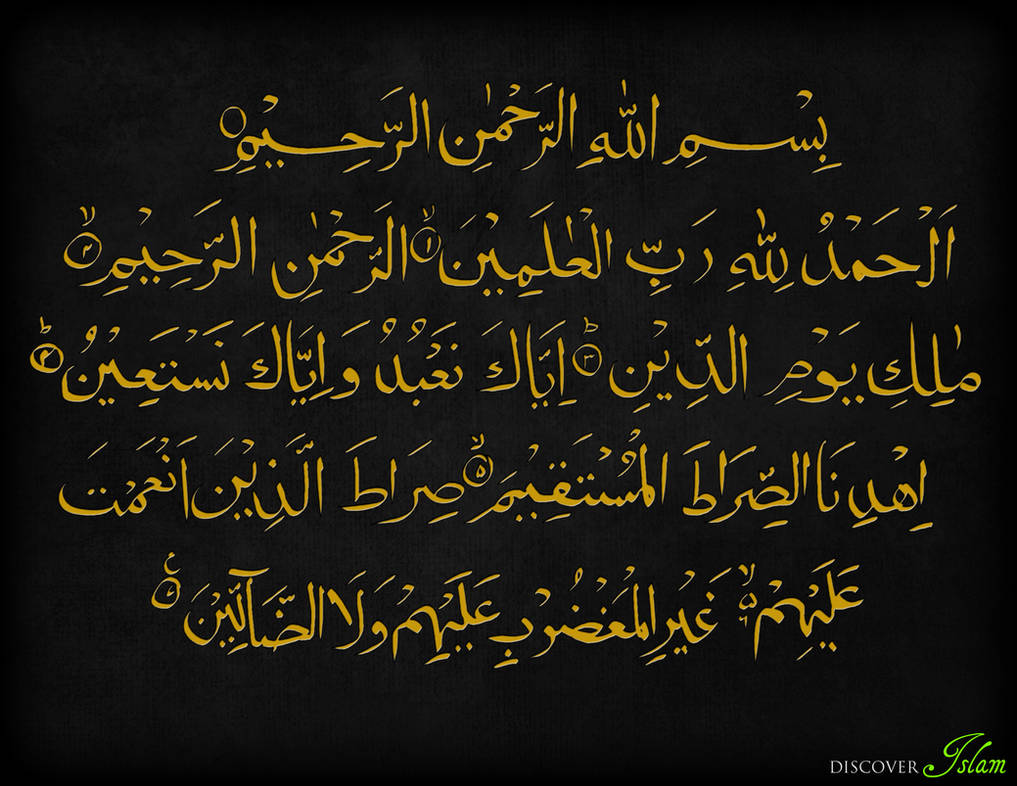 بِسْمِ اللّٰهِ الرَّحْمٰنِ الرَّحِيْمِ
اَلْحَمْدُ لِلّٰهِ رَبِّ الْعٰلَمِيْنَ ۙ﴿۱﴾ الرَّحْمٰنِ الرَّحِيْمِ ۙ﴿۲﴾
مٰلِكِ يَوْمِ الدِّيْنِ ؕ﴿۳﴾ اِيَّاكَ نَعْبُدُ وَاِيَّاكَ نَسْتَعِيْنُ ؕ﴿۴﴾
اِهْدِنَا الصِّرَاطَ الْمُسْتَقِيْمَ ۙ﴿۵﴾ صِرَاطَ الَّذِيْنَ اَنْعَمْتَ
عَلَيْهِمْ ۙ۬ۦ غَيْرِ الْمَغْضُوْبِ عَلَيْهِمْ وَلَا الضَّآلِّيْنَ
DISCOVER Islam